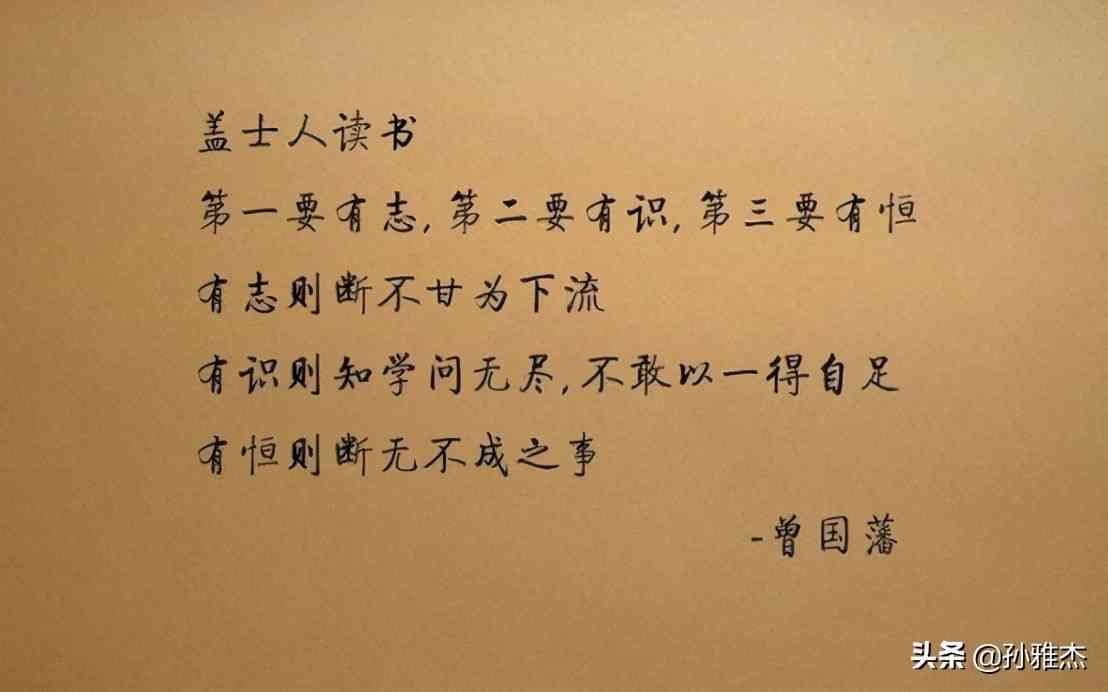 盖士人读书
第一要有志,第二要有识,第三要有恒
有志则断不甘为下流
有识则知学问无尽,不敢以一得自足
有恒则断无不成之事
-曾国藩
头条 @孙雅杰